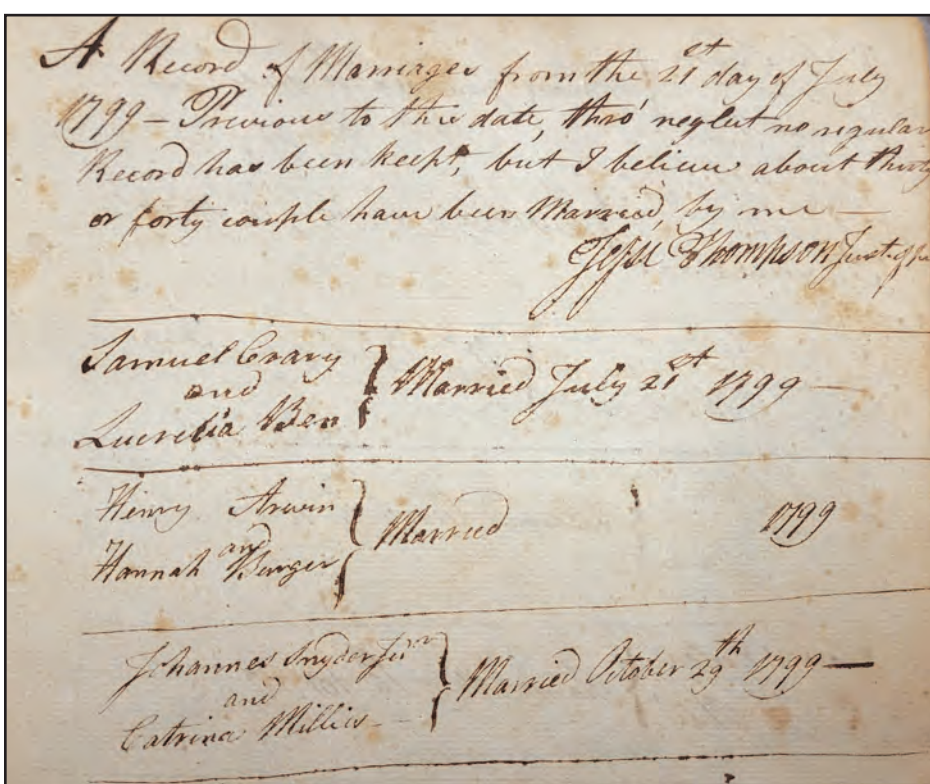 A Record of Marriages from the 21st day of July
1799 – Previous to this date, thro' neglect no regular
Record has been keept, but I believe about thirty
or forty couple have been Married, by me —
Jesse Thompson Just. of
Samuel Crary
and
Lucretia Ben
Married July 21st 1799 —
Henry Arwin
and
Hannah Burger
Married 1799
Johannes Snyder Junr
and
Catrina Millies
Married October 29th 1799 —